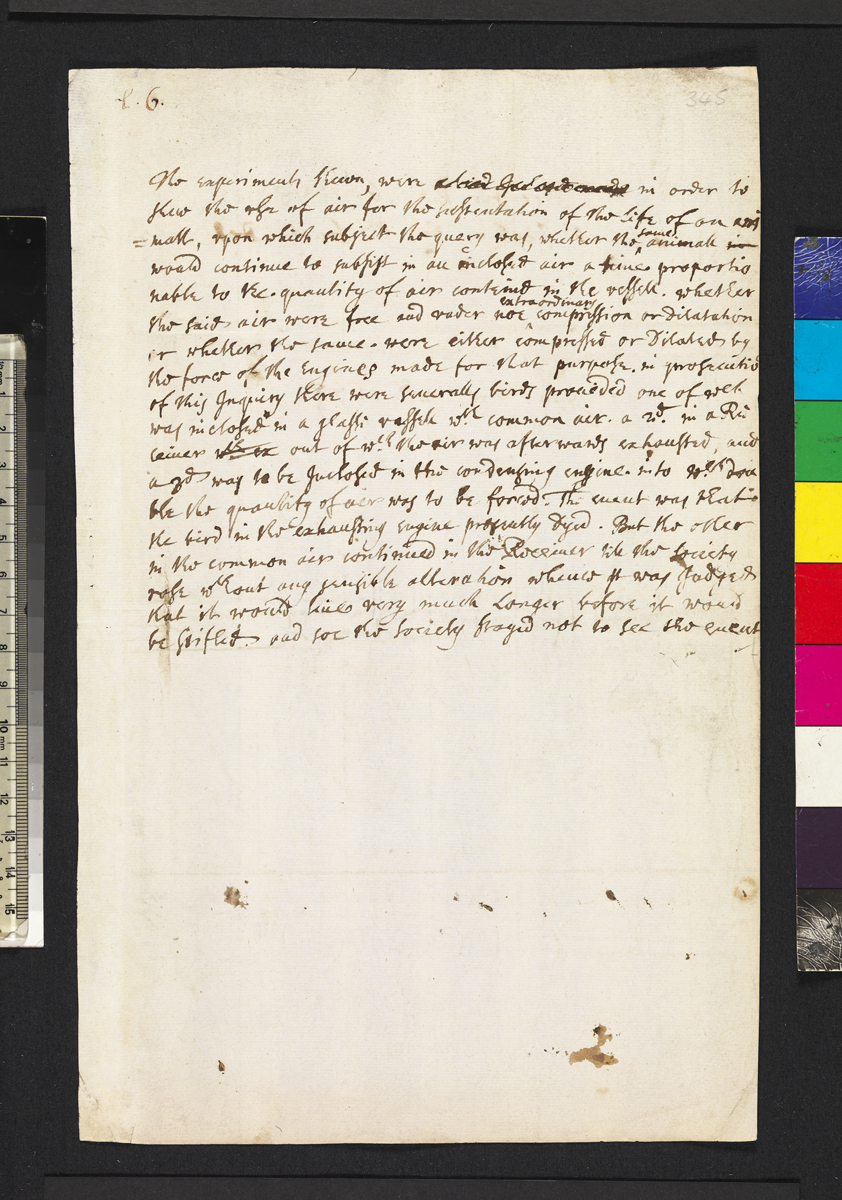 6.
345
The experiments shewn, were in order to
shew the use of air for the sustentation of the life of an ani
=mall, upon which subject the query was, whether the same animall in
would continue to subsist in an inclosed air a time proportio
nable to the quantity of air containd in the vessell. whether
the said air were free and under noe extraordinary compression or dilatation
or whether the same were either compressed or Dilated by
the force of the Engines made for that purpose. in prosecutiō
of this Inquiry there were severally birds provided one of wch
was inclosed in a glasse vessell wth common air. a 2d. in a Re
ceiver out of wch the air was afterwards exhausted, and
a 3d was to be Inclosed in the condensing engine. into wch dou
ble the quantity of air was to be forced. The event was that
the bird in the exhausting engine presently Dyed. But the other
in the common air continued in the Receiver till the Society
rose wthout any sensible alteration whence it was Judged
that it would live very much Longer before it would
be stifled. and soe the Society stayed not to see the event